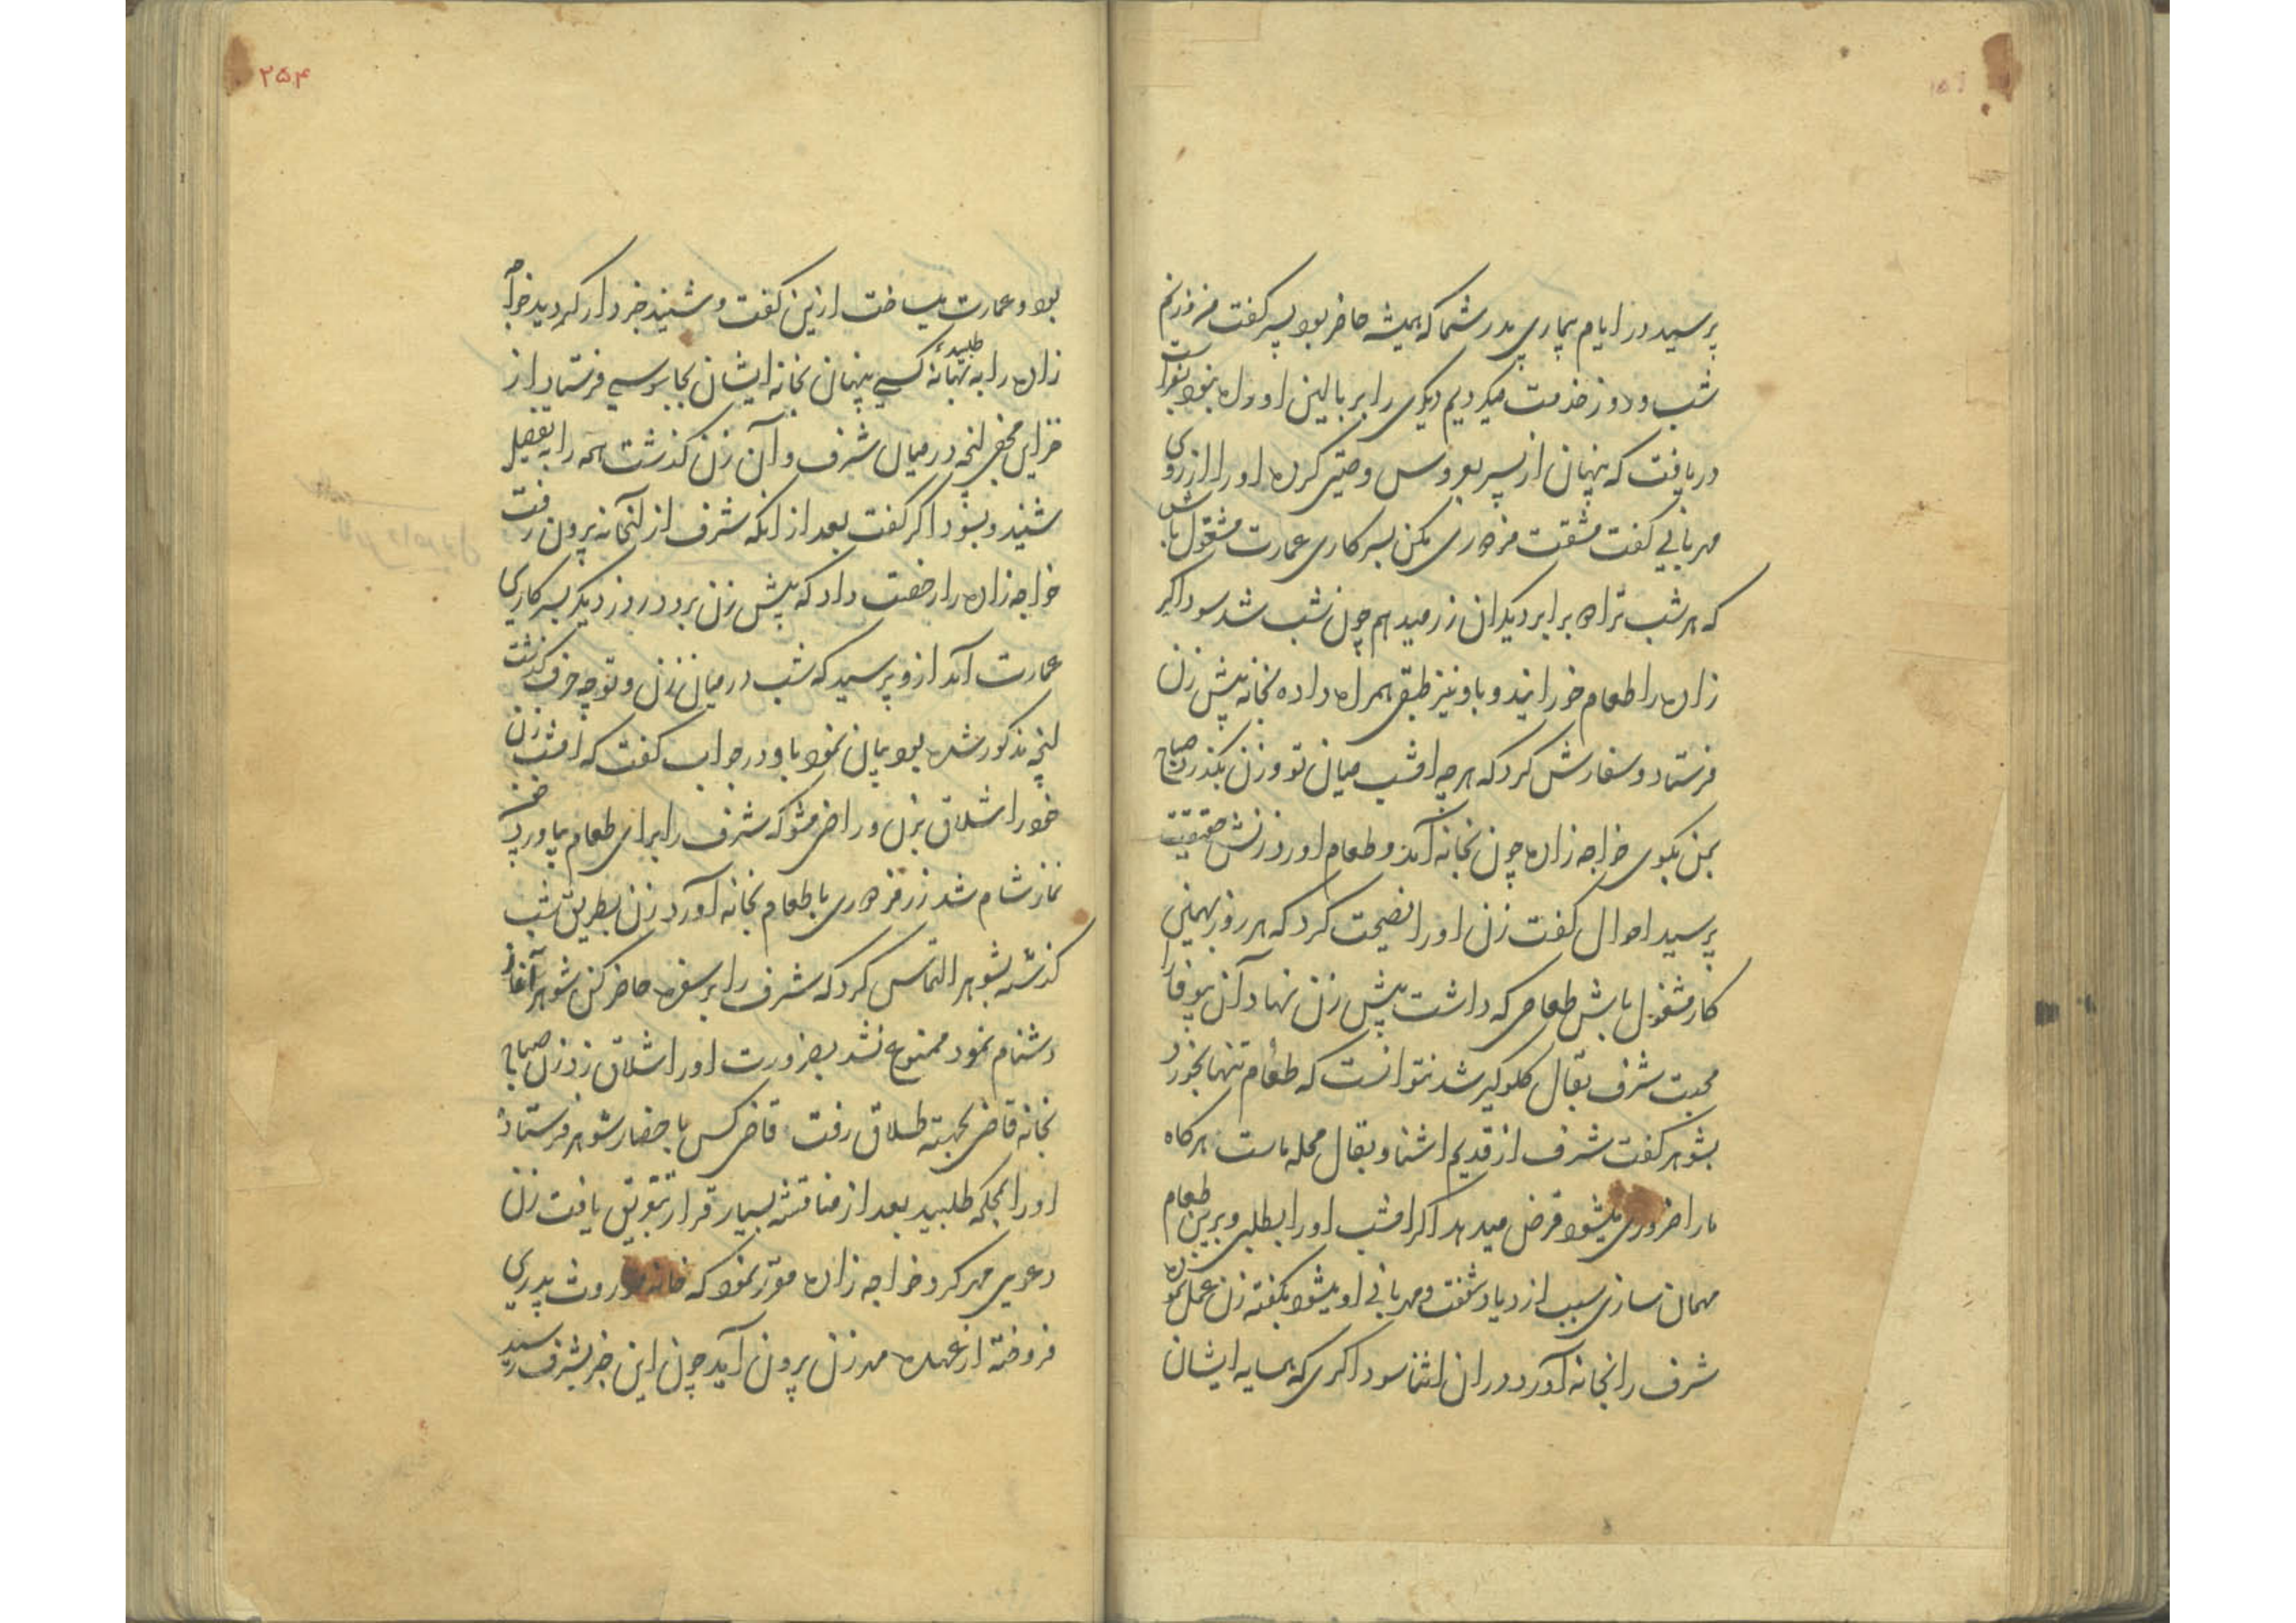 پرسید در ایام بیماری پدر شما که همیشه حاضر بود پسر گفت من و زنم
شب و روز خدمت میکردیم دیگری را بر بالین او راه نبود بفراست
دریافت که پنهان از پسر بعروس وصیتی کرده او را از روی
مهربانی گفت مشقت مزدوری مکن بسرکاری عمارت مشغول باش
که هر شب ترا برابر دیگران زر میدهم چون شب شد سوداگر
زاده را طعام خورانید و باو نیز طبقی همراه داده نجانه پیش زن
فرستاد و سفارش کرد که هر چه امشب میان تو و زن بگذرد صباح
بمن بگوی خواجه زاده چون نجانه آمد و طعام آورد زنش حقیقت
پرسید احوال گفت زن او را نصیحت کرد که هر روز بهمین
کار مشغول باش طعامی که داشت پیش زن نهاد آن بیوفا را
محبت شرف بقال گلوگیر شد نتوانست که طعام تنها بخورد
بشوهر گفت شرف از قدیم اشنا و بقال محله ماست هرگاه
ما را ضروری میشود قرض میدهد اگر امشب او را بطلبی و برین طعام
مهمان سازی سبب ازدیاد شفقت و مهربانی او میشود بگفته زن عمل نموده
شرف را نجانه آورد در ان اثنا سوداگری که همسایه ایشان
۲۵۴
بود و عمارت میساخت ازین گفت و شنید خبردار گردید خواجه
زاده را به بهانهٔ طلبیده کسی پنهان نجانه ایشان بجاسوسی فرستاد از
خزاین مخفی انچه در میان شرف و آن زن گذشت همه را بتفصیل
شنید و بسوداگر گفت بعد از انکه شرف از انخانه بیرون رفت
خواجه زاده را رخصت داد که پیش زن برود روز دیگر بسرکاری
عمارت آمد ازو پرسید که شب در میان زن و تو چه حرف گذشت
انچه مذکور شده بود بیان نمود باو در جواب گفت که امشب زن
خود را شلاق بزن و راضی مشو که شرف را برای طعام بیاورد چون
نماز شام شد زر مزدوری با طعام نجانه آورد زن بطریق شب
گذشته بشوهر التماس کرد که شرف را بر سفره حاضر کن شوهر آغاز
دشنام نمود ممنوع نشد بضرورت او را شلاق زد زن صباح
نجانه قاضی بجهته طلاق رفت قاضی کس باحضار شوهر فرستاد
او را بمحکمه طلبید بعد از مناقشه بسیار قرار بتفویق یافت زن
دعوی مهر کرد خواجه زاده مقرر نمود که خانه موروث پدری
فروخته از عهده مهر زن بیرون آید چون این خبر بشرف رسید